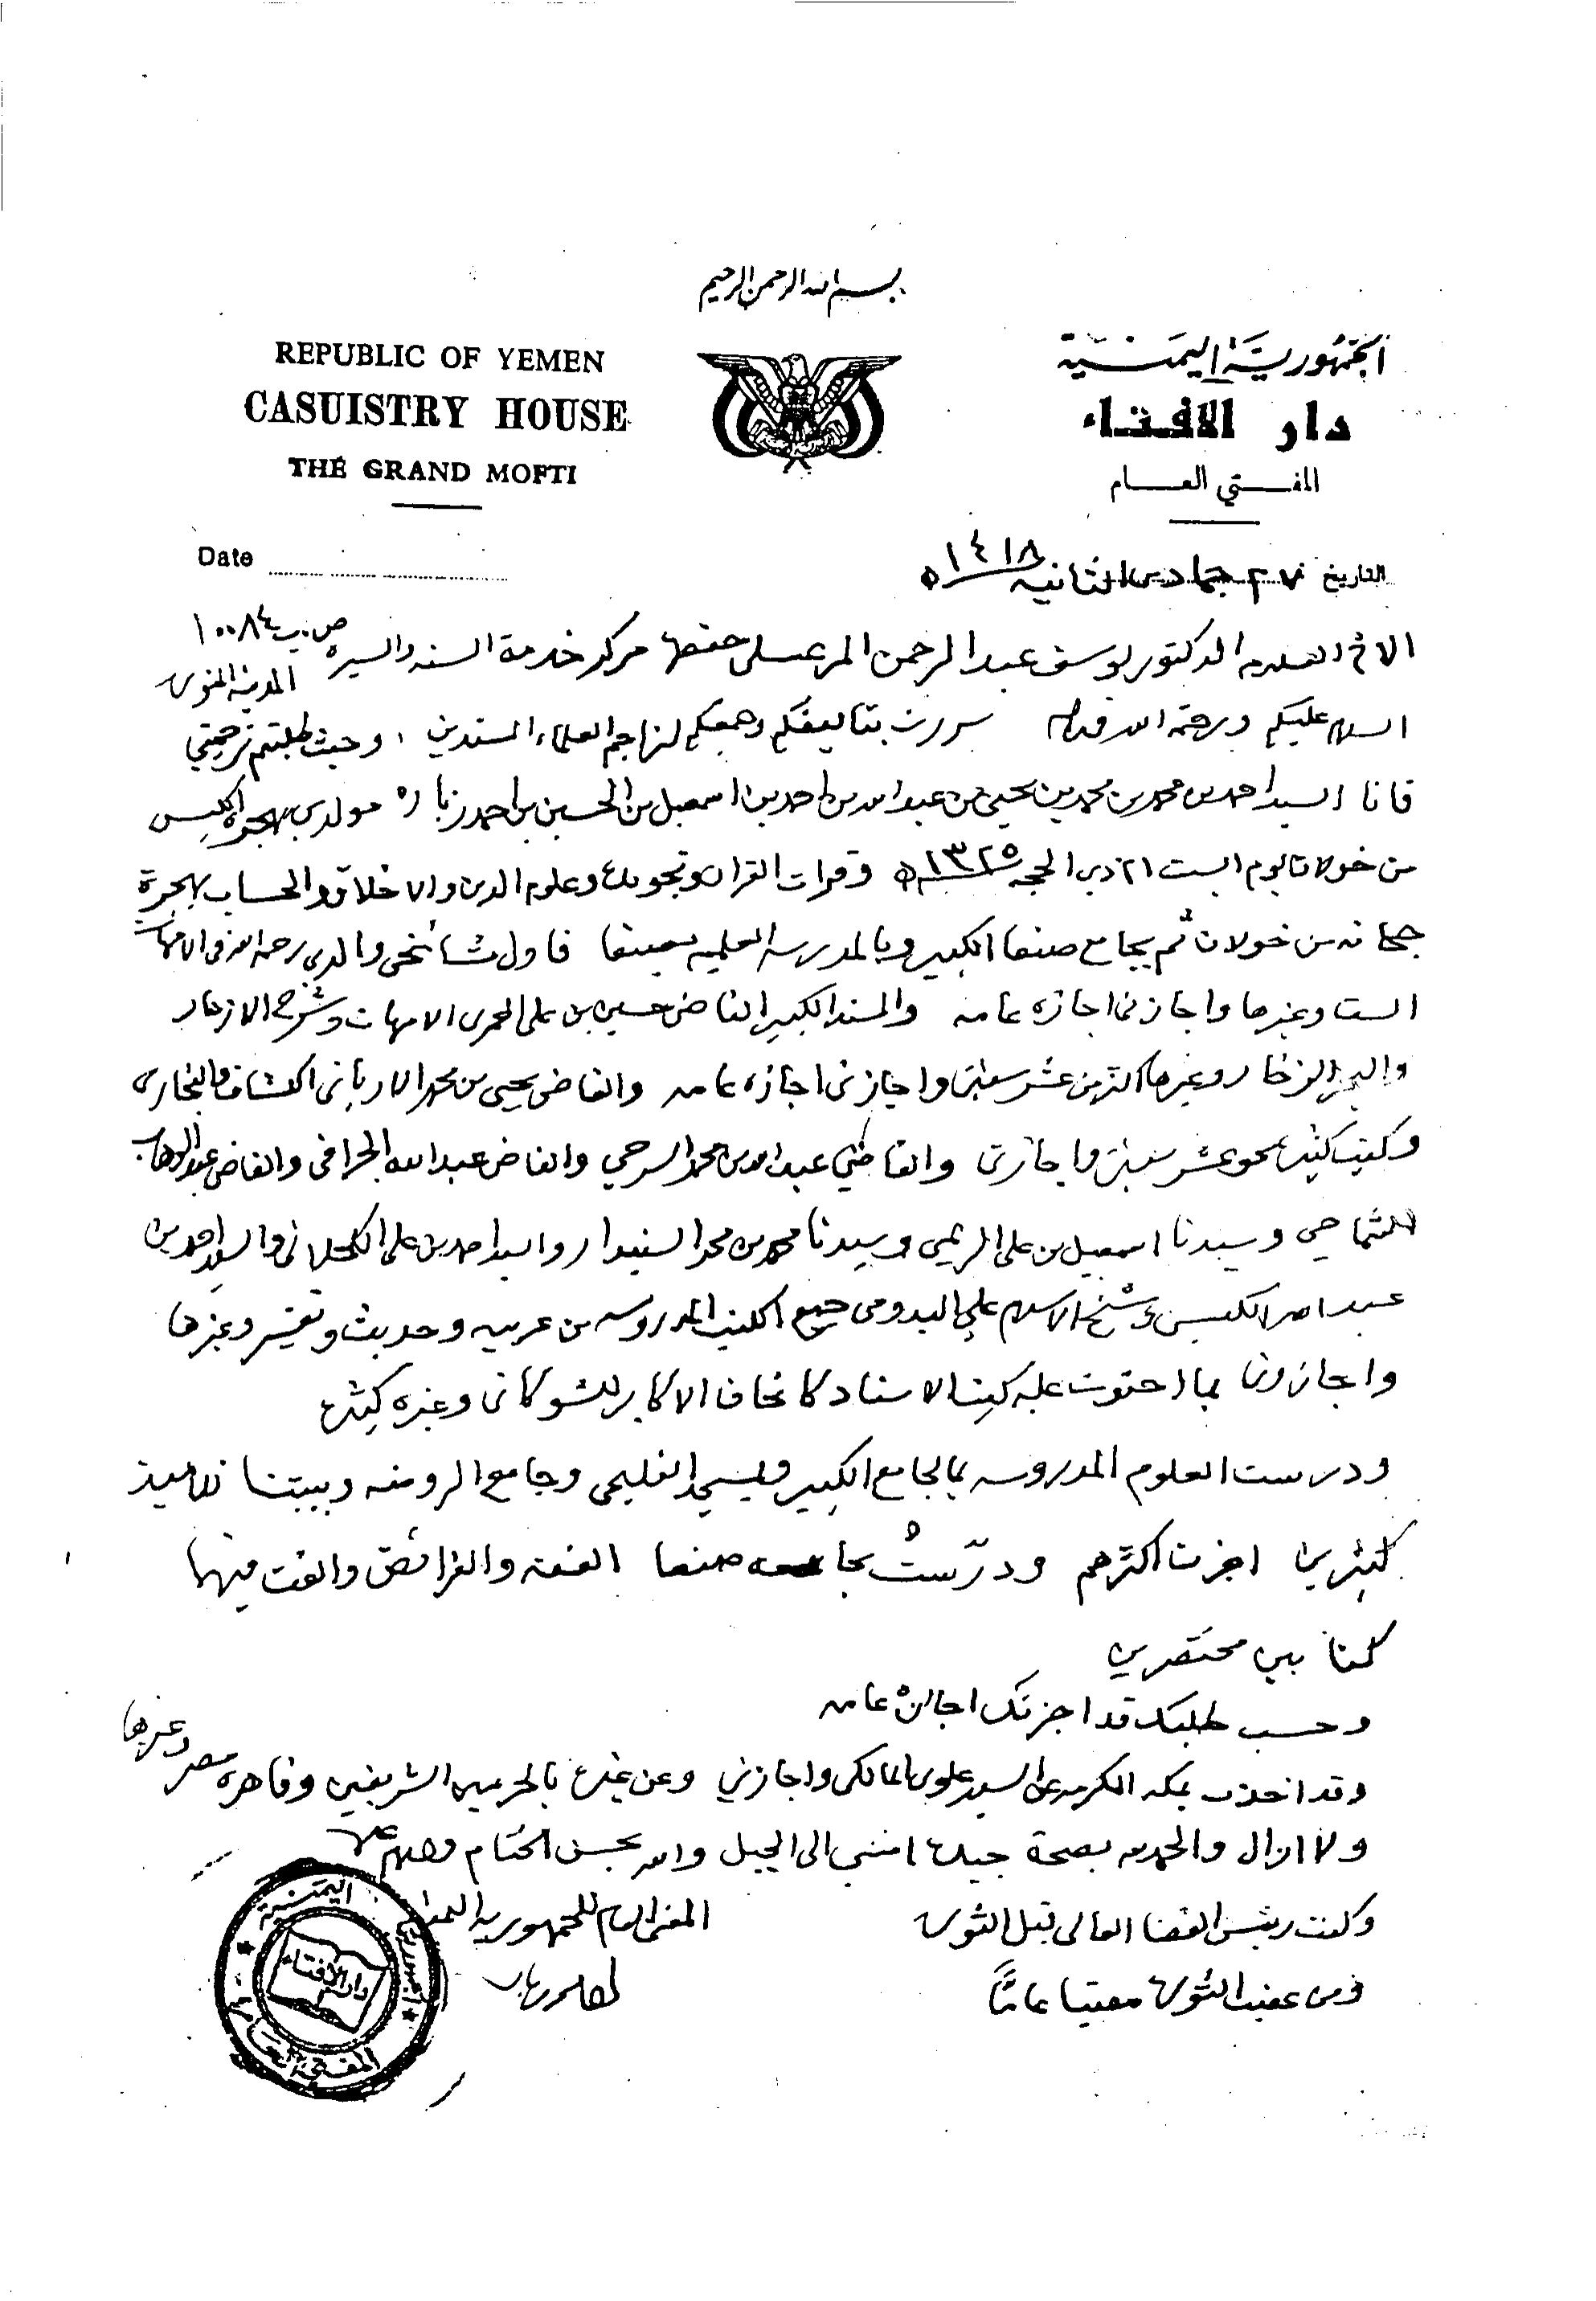 بسم الله الرحمن الرحيم
REPUBLIC OF YEMEN
CASUISTRY HOUSE
THE GRAND MOFTI
الجمهورية اليمنية
دار الافتاء
المفتي العام
Date
التاريخ ٢٧ جمادى الثانية ١٤١٨ه
الاخ العلامه الدكتور يوسف عبد الرحمن المرعشلي حفظه مركز خدمة السنه والسيره ص.ب ١٠٠٨٤
المدينة المنوره
السلام عليكم ورحمة الله سررت بتأليفكم وجمعكم لتراجم العلماء المسندين ، وحيث طلبتم ترجمتي
فانا السيد احمد بن محمد بن محمد بن يحيى بن عبدالله بن احمد بن اسمعيل بن الحسين بن احمد زباره مولدي بهجرة الكبس
من خولان يوم السبت ٢١ ذي الحجه ١٣٢٥ه وقرات القران وتجويده وعلوم الدين والاخلاق والحساب بهجرة
جحانه من خولان ثم بجامع صنعا الكبير وبالمدرسه العلميه بصنعا فاول مشائخي والدي رحمه الله في الامهات
الست وغيرها واجازني اجازه عامه والمسند الكبير القاضي حسين بن علي العمري الامهات وشرح الازهار
والبحر الزخار وغيرها اكثر من عشر سنين واجازني اجازه عامه والقاضي يحيى بن محمد الارياني الكشاف والبخاري
وكتب كثيره نحو عشر سنين واجازني والقاضي عبدالله بن محمد السرحي والقاضي عبدالله الجرافي والقاضي عبدالوهاب
الشماحي وسيدنا اسمعيل بن علي الريمي وسيدنا محمد بن محمد السنيدار والسيد احمد بن علي الكحلاني والسيد احمد بن
عبدالله الكبسي وشيخ الاسلام علي اليدومي جميع الكتب المدروسه من عربيه وحديث وتفسير وغيرها
واجازوني بما احتوت عليه كتب الاسناد كاتحاف الاكابر للشوكاني وغيره كثيره
ودرست العلوم المدروسه بالجامع الكبير وبمسجد الفليحي وجامع الروضه وبيتنا تلاميذ
كثيرين اجزت اكثرهم ودرّستُ بجامعه صنعا الفقه والفرائض والفت فيهما
كتابين مختصرين
وحسب طلبك قد اجزتك اجازة عامه
وقد اخذت بمكه المكرمه على السيد علوي المالكي واجازني وعن غيره بالحرمين الشريفين وقاهره مصر وغيرها
ولا ازال والحمد لله بصحة جيده امشي الى الجبل والله يحسن الختام والسلام عليكم
وكنت رئيس القضا العالي قبل الثوره
ومن عقيب الثوره مفتيا عامًا
المفتي العام للجمهوريه اليمنيه
احمد زباره
الجمهورية اليمنية
دار الافتاء
المفتي العام